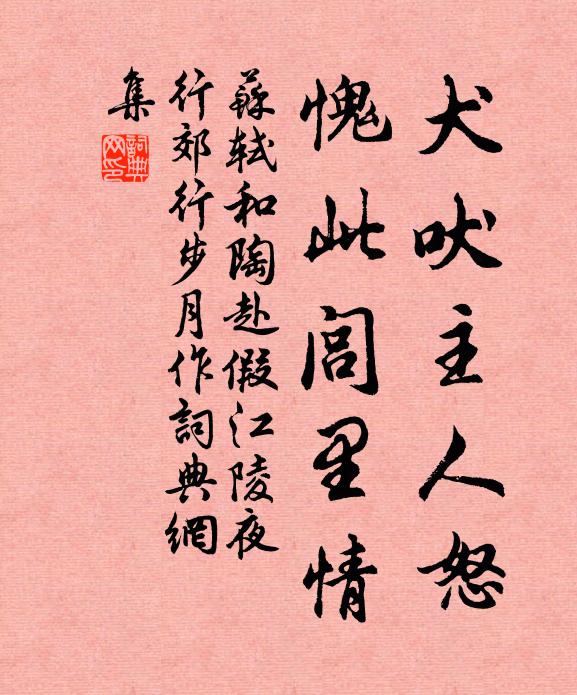 犬吠主人怒
愧此閭里情
蘇軾和陶赴假江陵夜
行郊行步月作詞典網
集
詞典
网印